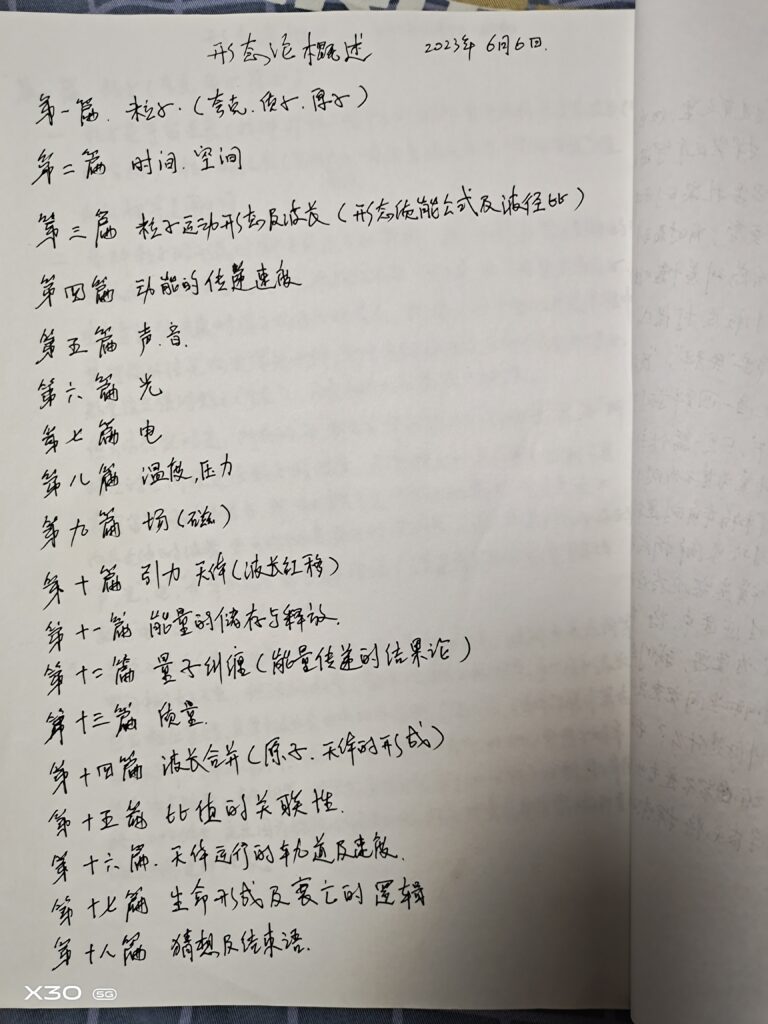 形态论概述 2023年6月6日.
第一篇. 粒子.(夸克.质子.原子)
第二篇 时间.空间
第三篇 粒子运动形态及波长(形态质能公式及波径比)
第四篇 动能的传递速度
第五篇 声.音.
第六篇 光
第七篇 电
第八篇 温度,压力
第九篇 场(磁)
第十篇 引力 天体(波长红移)
第十一篇 能量的储存与释放.
第十二篇 量子纠缠(能量传递的结果论)
第十三篇 质量.
第十四篇 波长合并(原子.天体的形成)
第十五篇 比值的关联性.
第十六篇. 天体运行的轨道及速度.
第十七篇 生命形成及衰亡的逻辑
第十八篇 猜想及结束语.
X30 5G